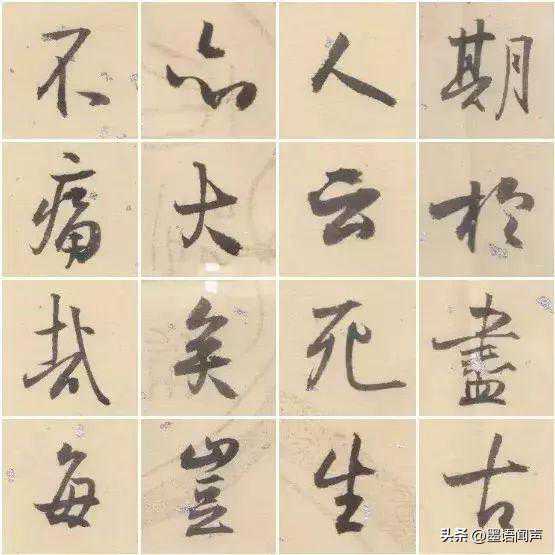 期於盡古
人云死生
亦大矣豈
不痛哉每
头条 @墨语闻声